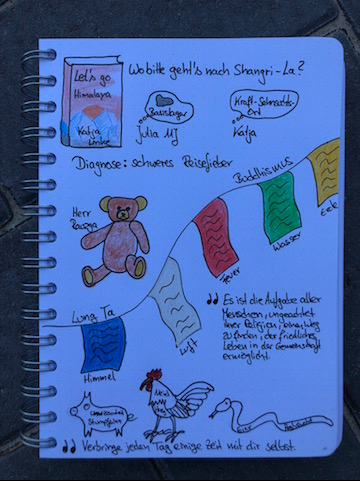 Let's go
Himalaya
Katja
Linke
Wo bitte geht's nach Shangri-La?
Basislager
Julia MJ
Kraft-Sehnsuchts-
Ort
Katja
Diagnose: schweres Reisefieber
Buddhismus
Herr
Lung Ta
Himmel
Luft
Feuer
Wasser
Erde
"Es ist die Aufgabe aller
Menschen, ungeachtet
ihrer Religion, einen Weg
zu finden, der friedliches
Leben in der Gemeinschaft
ermöglicht.
Unwissenheit
Gier
"Verbringe jeden Tag einige Zeit mit dir selbst.